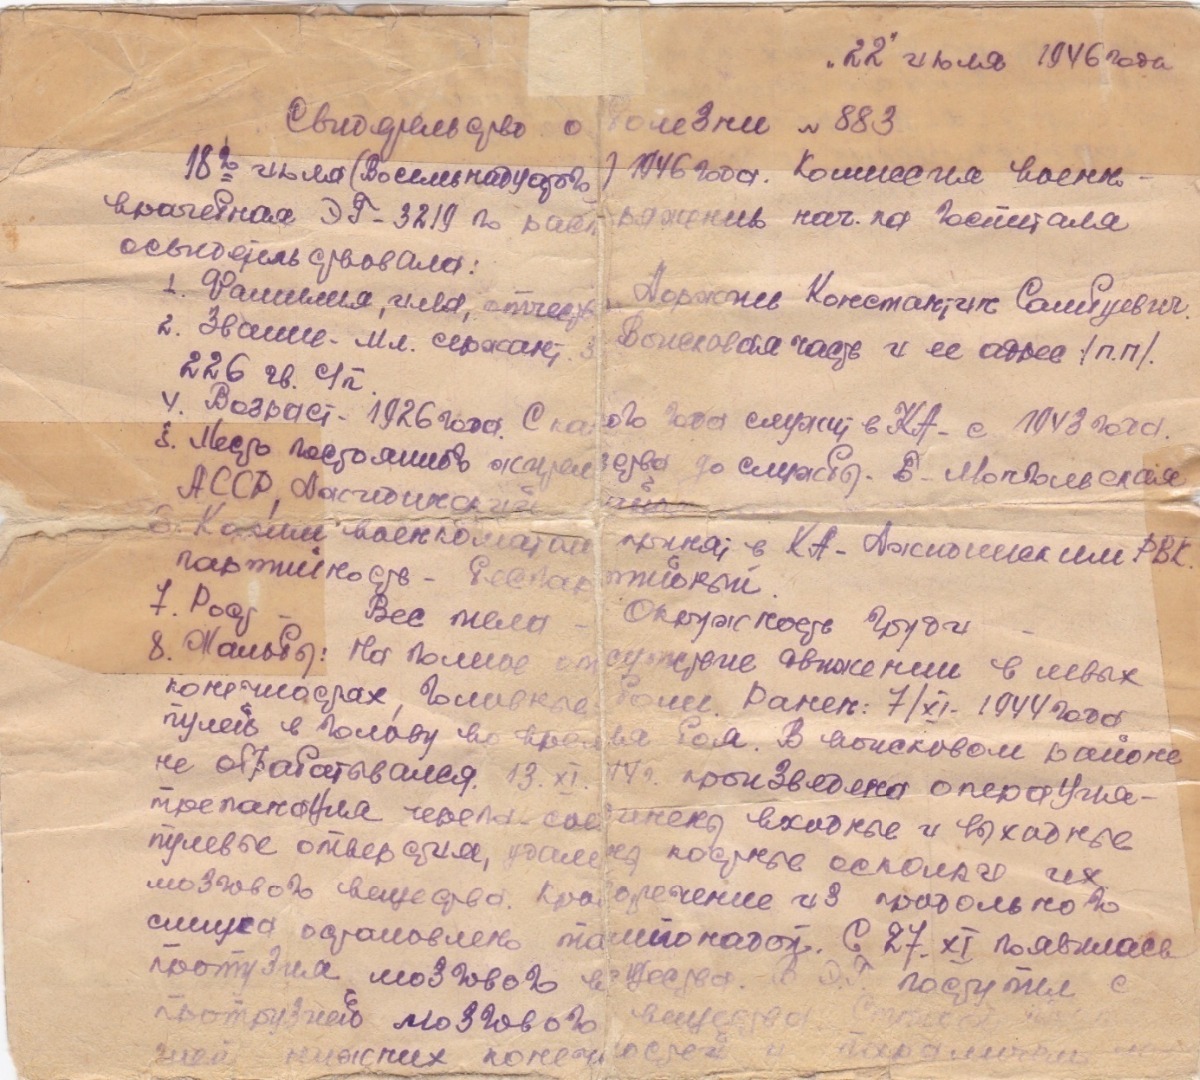 „22" июля 1946 года
Свидетельство о болезни № 883
18го июля (Восемнадцатого) 1946 года. Комиссия военно-
врачебная ЭГ-3219 по распоряжению нач-ка госпиталя
освидетельствовала:
1. Фамилия, имя, отчество Доржиев Константин Самбуевич.
2. Звание - мл. сержант. 3. Войсковая часть и ее адрес /п.п/.
226 гв. с/п.
4. Возраст - 1926 года. С какого года служит в КА - с 1943 года.
5. Место постоянного жительства до службы. Б-Монгольская
АССР, Джидинский
6. Каким военкоматом принят в КА - Джидинским РВК.
партийность - беспартийный.
7. Рост - Вес тела - Окружность груди -
8. Жалобы: На полное отсутствие движении в левых
конечностях, головные боли. Ранен: 7/XI - 1944 года
пулей в голову во время боя. В войсковом районе
не обрабатывался. 13. XI. 44 г. произведена операция -
трепанация черепа соединены входные и выходные
пулевые отверстия, удалены костные осколки из
мозгового вещества. Кровотечение из продольного
синуса остановлено тампонадой. С 27. XI появилась
протрузия мозгового вещества. В ЭГ поступил с
протрузией мозгового вещества
нижних конечностей и параличом